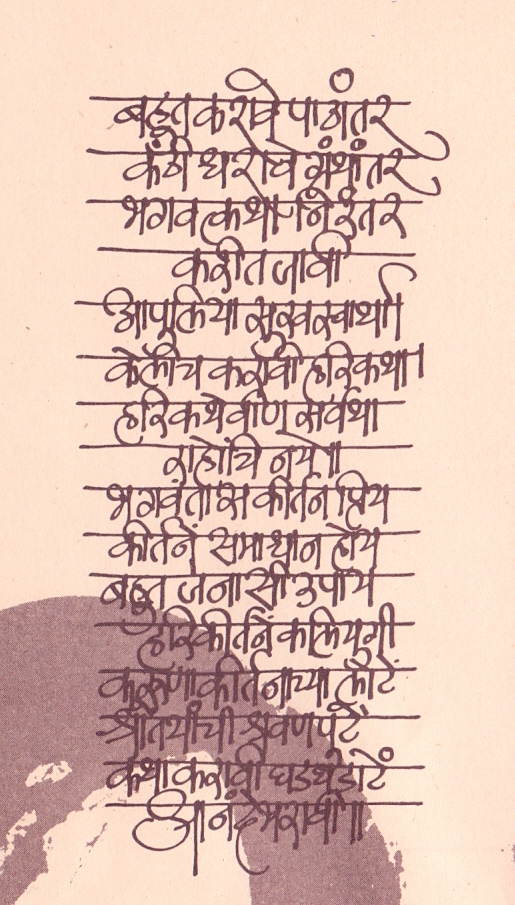 बहुत करावे पाठांतर
कंठी धरावे ग्रंथांतर
भगवत्कथा निरंतर
करीत जावी
आपुलिया सुखस्वार्था।
केलीच करावी हरिकथा।
हरिकथेवीण सर्वथा
राहोंचि नये॥
भगवंतास कीर्तन प्रिय
कीर्तनें समाधान होय
बहुत जनासी उपाय
हरिकीर्तनें कलियुगी
करुणाकीर्तनाच्या लोटें
श्रोतयांची श्रवणपुटें
कथा करावी घडघडाटें
आनंदे भरावी॥